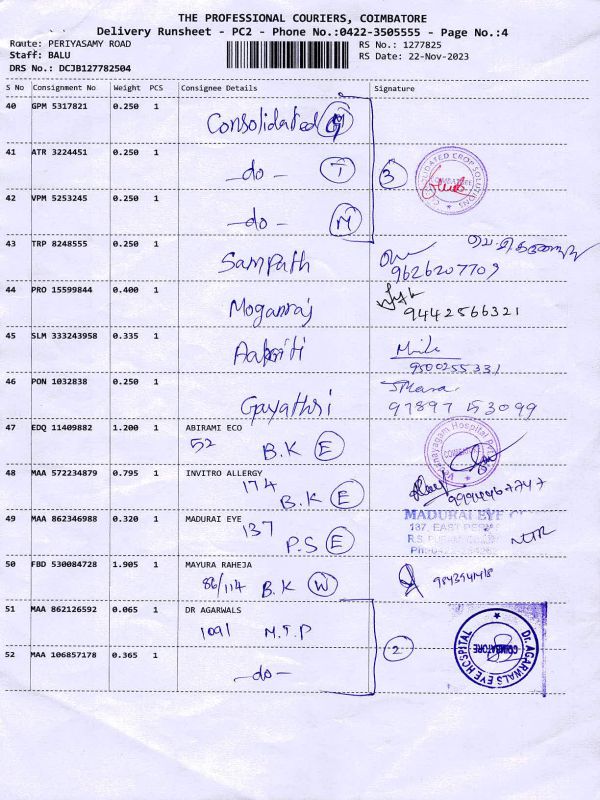 THE PROFESSIONAL COURIERS, COIMBATORE
Delivery Runsheet - PC2 - Phone No.:0422-3505555 - Page No.:4
Route: PERIYASAMY ROAD RS No.: 1277825
Staff: BALU RS Date: 22-Nov-2023
DRS No.: DCJB127782504
S No Consignment No Weight PCS Consignee Details Signature
40 GPM 5317821 0.250 1 Consolidated G
41 ATR 3224451 0.250 1 -do- T 3
42 VPM 5253245 0.250 1 -do- M
43 TRP 8248555 0.250 1 Sampath 9626207709
44 PRO 15599844 0.400 1 Moganraj 9442566321
45 SLM 333243958 0.335 1 9500255331
46 PON 1032838 0.250 1 Gayathri 97897 53099
47 EDQ 11409882 1.200 1 ABIRAMI ECO
52 B.K E
48 MAA 572234879 0.795 1 INVITRO ALLERGY
174 B.K E
49 MAA 862346988 0.320 1 MADURAI EYE MADURAI EYE
137 P.S E 187, EAST
50 FBD 530084728 1.905 1 MAYURA RAHEJA
86/114 B.K W
51 MAA 862126592 0.065 1 DR AGARWALS
1091 M.T.P 2 Dr. AGARWALS EYE HOSPITAL
COIMBATORE
52 MAA 106857178 0.365 1 -do-